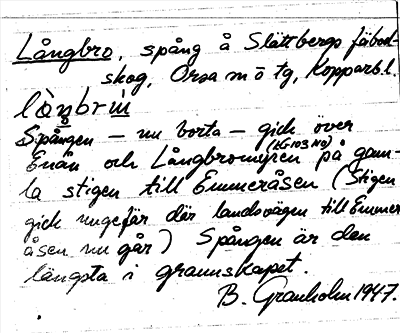 Långbro, spång å Slättbergs fäbod-
skog, Orsa m ö tg, Kopparb.l.
là̀nbrù̀
Spången – nu borta – gick över
(EG 103 NO)
Enån och Långbromyren på gam-
la stigen till Emmeråsen (Stigen
gick ungefär där landsvägen till Emmer-
åsen nu går) Spången är den
längsta i grannskapet.
B. Granholm 1947.